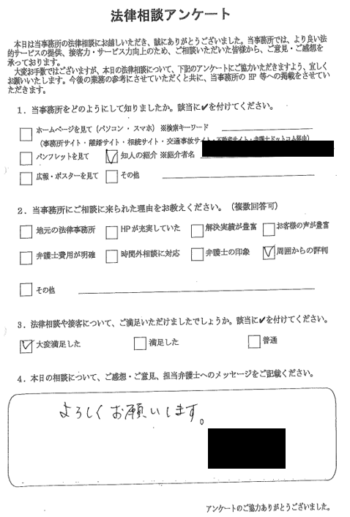 法律相談アンケート
本日は当事務所の法律相談にお越しいただき、誠にありがとうございました。当事務所では、より良い法
的サービスの提供、接客力・サービス力向上のため、ご相談いただいた皆様から、ご意見・ご感想を
承っております。
大変お手数ではございますが、本日の法律相談について、下記のアンケートにご協力いただきますよう、宜しく
お願いいたします。今後の業務の参考にさせていただくと共に、当事務所の HP 等への掲載をさせていた
だきます。
1．当事務所をどのようにして知りましたか。該当に✔を付けてください。
ホームページを見て（パソコン ・ スマホ）※検索キーワード
（事務所サイト・離婚サイト・相続サイト・交通事故サイト・
パンフレットを見て 知人の紹介 ※紹介者名
広報・ポスターを見て その他
2．当事務所にご相談に来られた理由をお教えください。（複数回答可）
地元の法律事務所 HPが充実していた 解決実績が豊富 お客様の声が豊富
弁護士費用が明確 時間外相談に対応 弁護士の印象 周囲からの評判
その他
3．法律相談や接客について、ご満足いただけましたでしょうか。該当に✔を付けてください。
大変満足した 満足した 普通
4．本日の相談について、ご感想・ご意見、担当弁護士へのメッセージをご記載ください。
よろしくお願いします。
アンケートのご協力ありがとうございました。